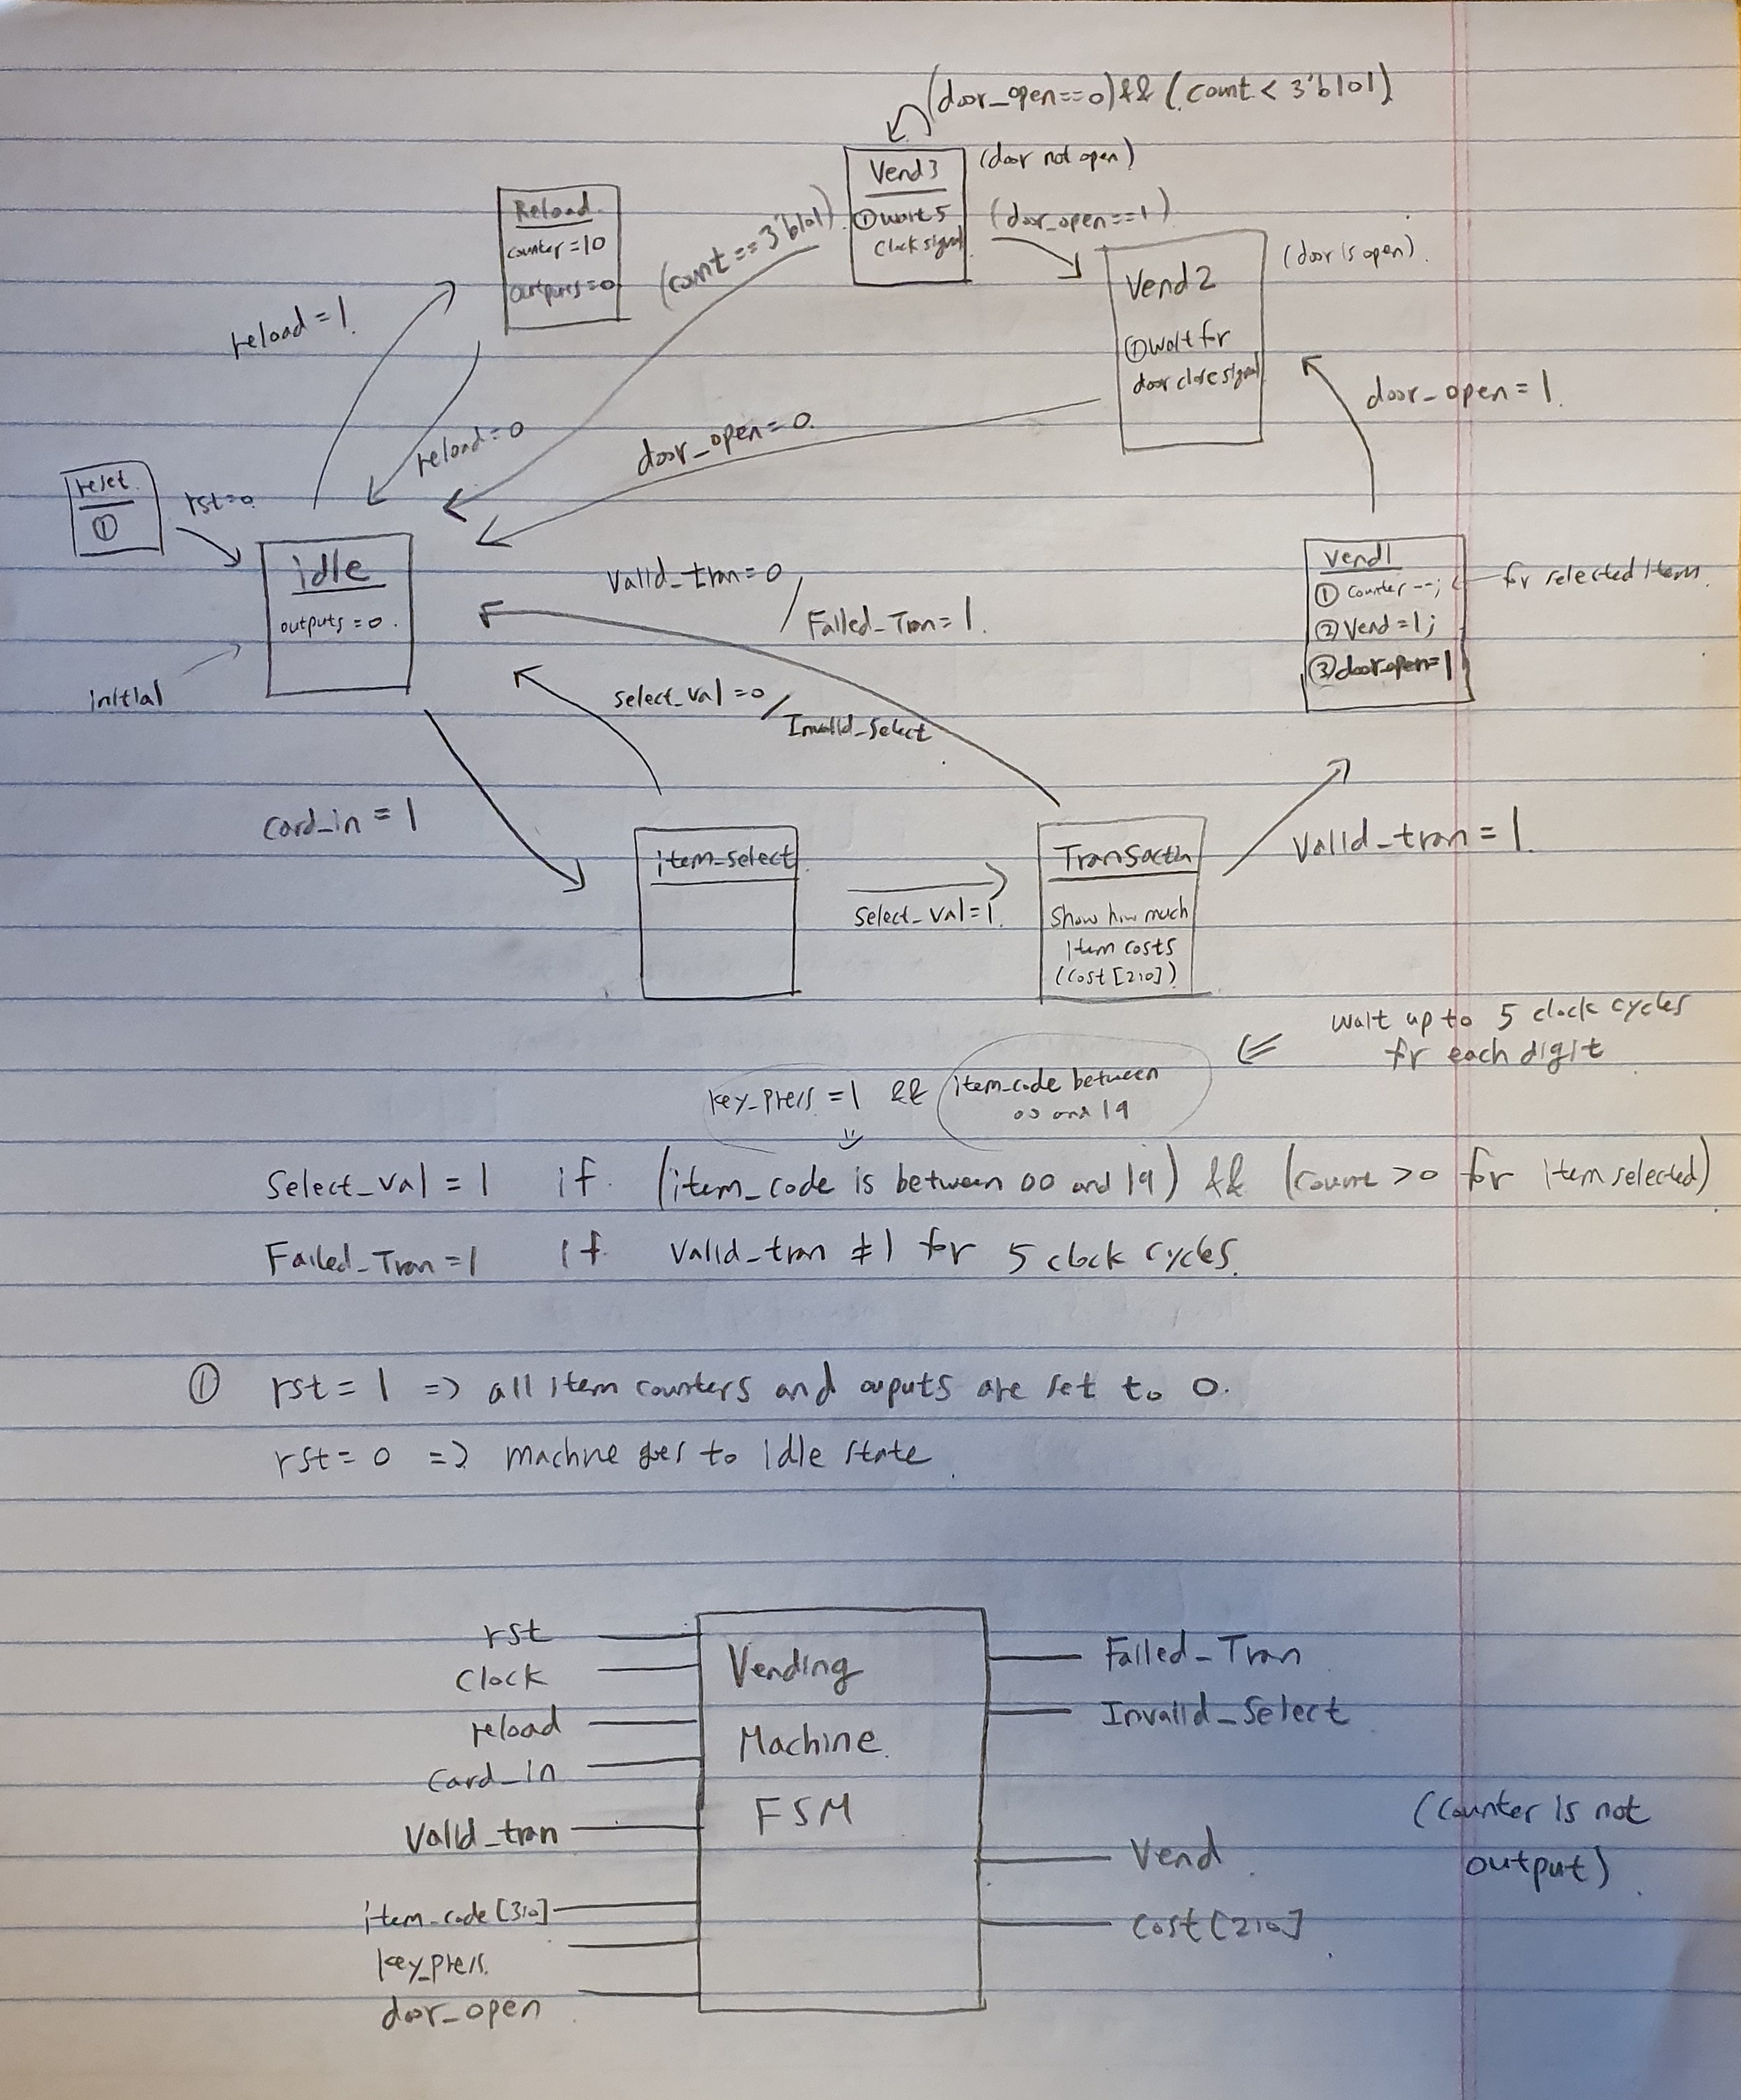 (door_open==0)&& (count < 3'b101)
Vend3
(door not open)
① wait 5
clock signal
(door_open==1)
Reload
counter=10
outputs=0
(count == 3'b101)
Vend2
(door is open)
① wait for
door close signal
reload=1.
reload=0
door_open=0.
door_open=1.
reset
①
rst=0
idle
outputs=0.
initial
Valid_tran=0
/
Failed_Tran=1.
Vend1
① counter--;
② Vend=1;
③ door_open=1
for selected item.
select_val=0
/
Invalid_select
card_in=1
item_select
Select_val=1.
Show how much
item costs
(cost[2:0])
Valid_tran=1.
wait up to 5 clock cycles
for each digit
key_press=1 && item_code between
00 and 19
Select_val=1 if (item_code is between 00 and 19) && (count >0 for item selected)
Failed_Tran=1 if valid_tran ≠1 for 5 clock cycles.
① rst=1 => all item counters and ouputs are set to 0.
rst=0 => machine goes to idle state.
rst
Clock
reload
Card_in
Valid_tran
item_code[3:0]
key_press.
door_open
Vending
Machine.
FSM
Failed_Tran
Invalid_Select
Vend
Cost[2:0]
(counter is not
output)